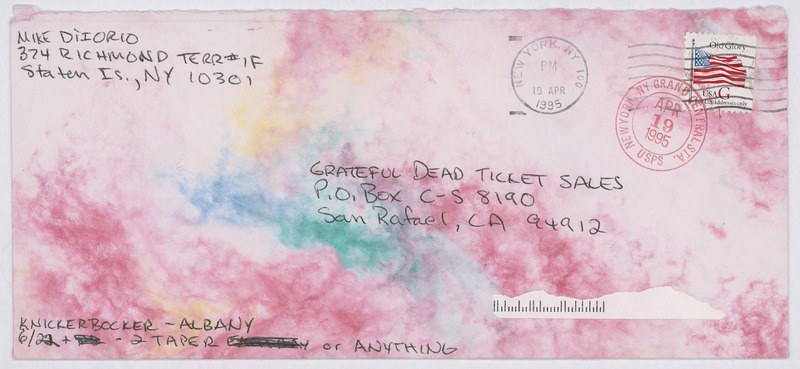 MIKE DiIORIO
374 RICHMOND TERR #1F
Staten Is., NY 10301
NEW YORK, NY 100
PM
19 APR
1995
Old Glory
USA G
For U.S. addresses only
NEW YORK NY GRAND CENTRAL STA.
APR
19
1995
USPS
GRATEFUL DEAD TICKET SALES
P.O. BOX C-S 8190
San Rafael, CA 94912
KNICKERBOCKER - ALBANY
6/22 + - 2 TAPER or ANYTHING